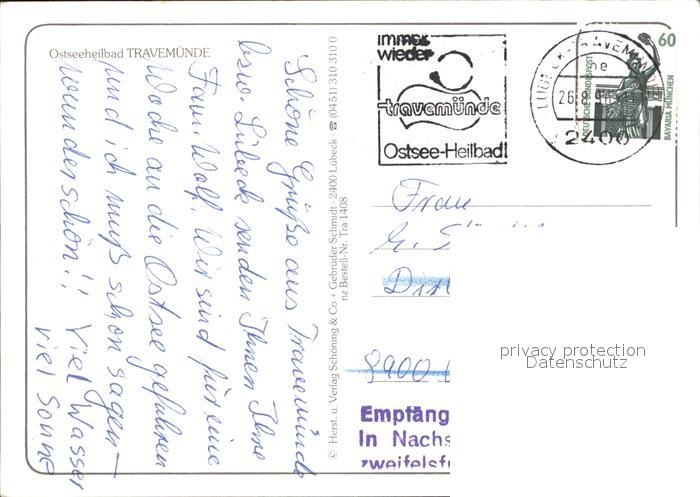 Ostseeheilbad TRAVEMÜNDE
Schöne Grüße aus Travemünde
bzw. Lübeck senden Ihnen Ihre
Fam. Wolf. Wir sind für eine
Woche an die Ostsee gefahren
und ich muß schon sagen –
wunderschön!! Viel Wasser
viel Sonne
© Herst. u. Verlag Schöning & Co + Gebrüder Schmidt · 2400 Lübeck ☎ (0451) 310 310 0
nz Bestell-Nr. Tra 1408
immer
wieder
travemünde
Ostsee-Heilbad
LÜBECK-TRAVEMÜ
e
26.
2400
60
DEUTSCHE BUNDESPOST
BAVARIA MÜNCHEN
Frau
G.
8900
Empfäng
In Nachs
zweifelsf
privacy protection
Datenschutz